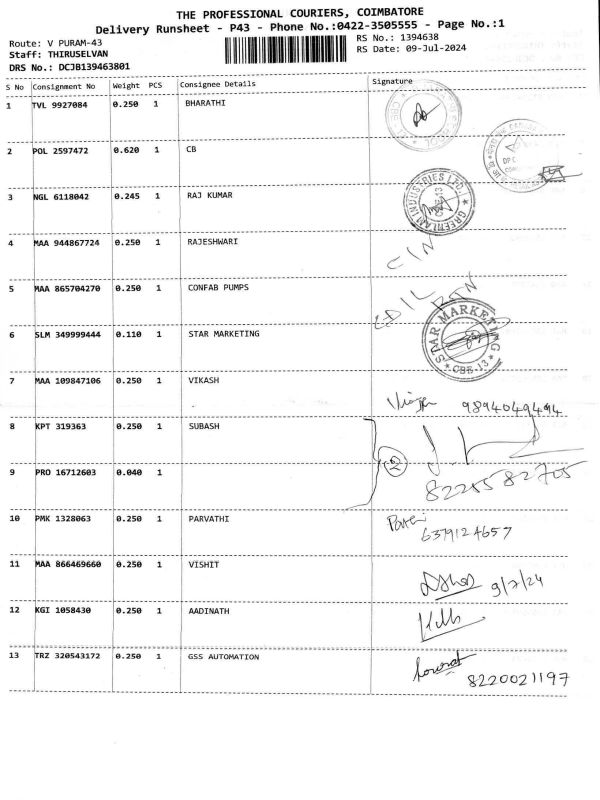 THE PROFESSIONAL COURIERS, COIMBATORE
Delivery Runsheet - P43 - Phone No.:0422-3505555 - Page No.:1
Route: V PURAM-43
RS No.: 1394638
Staff: THIRUSELVAN
RS Date: 09-Jul-2024
DRS No.: DCJB139463801
S No Consignment No Weight PCS Consignee Details Signature
1 TVL 9927084 0.250 1 BHARATHI
2 POL 2597472 0.620 1 CB
3 NGL 6118042 0.245 1 RAJ KUMAR
GREENLAM INDUSTRIES LTD. CBE-13
4 MAA 944867724 0.250 1 RAJESHWARI
5 MAA 865704270 0.250 1 CONFAB PUMPS
6 SLM 349999444 0.110 1 STAR MARKETING
STAR MARKETING CBE-13
7 MAA 109847106 0.250 1 VIKASH
9894049494
8 KPT 319363 0.250 1 SUBASH
2
9 PRO 16712603 0.040 1
8225582705
10 PMK 1328063 0.250 1 PARVATHI
6379124657
11 MAA 866469660 0.250 1 VISHIT
9/7/24
12 KGI 1058430 0.250 1 AADINATH
13 TRZ 320543172 0.250 1 GSS AUTOMATION
8220021197